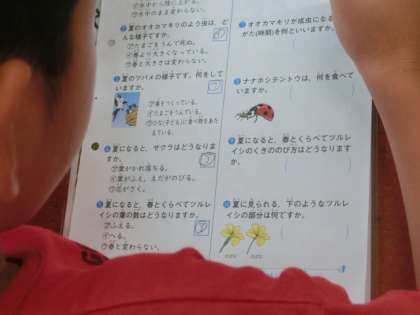 ㋑水中から陸に上がる。
㋒水中のまま変わらない。
夏のオオカマキリのよう虫は、ど
んな様子ですか。
㋐たまごをうんで死ぬ。
㋑春より大きくなっている。
㋒春と大きさは変わらない。
夏のツバメの様子です。何をして
いますか。
㋐巣をつくっている。
㋑たまごをうんでいる。
㋒ひな(子ども)に食べ物をあた
えている。
夏になると、サクラはどうなりま
すか。
㋐葉がかれ落ちる。
㋑葉がふえ、えだがのびる。
㋒花がさく。
夏になると、春とくらべてツルレ
イシの葉の数はどうなりますか。
㋐ふえる。
㋑へる。
㋒春と変わらない。
オオカマキリが成虫になる
がた(時期)を何といいますか。
ナナホシテントウは、何を食べて
いますか。
夏になると、春とくらべてツルレ
イシのくきののび方はどうなりま
すか。
夏に見られる、下のようなツルレ
イシの部分は何ですか。